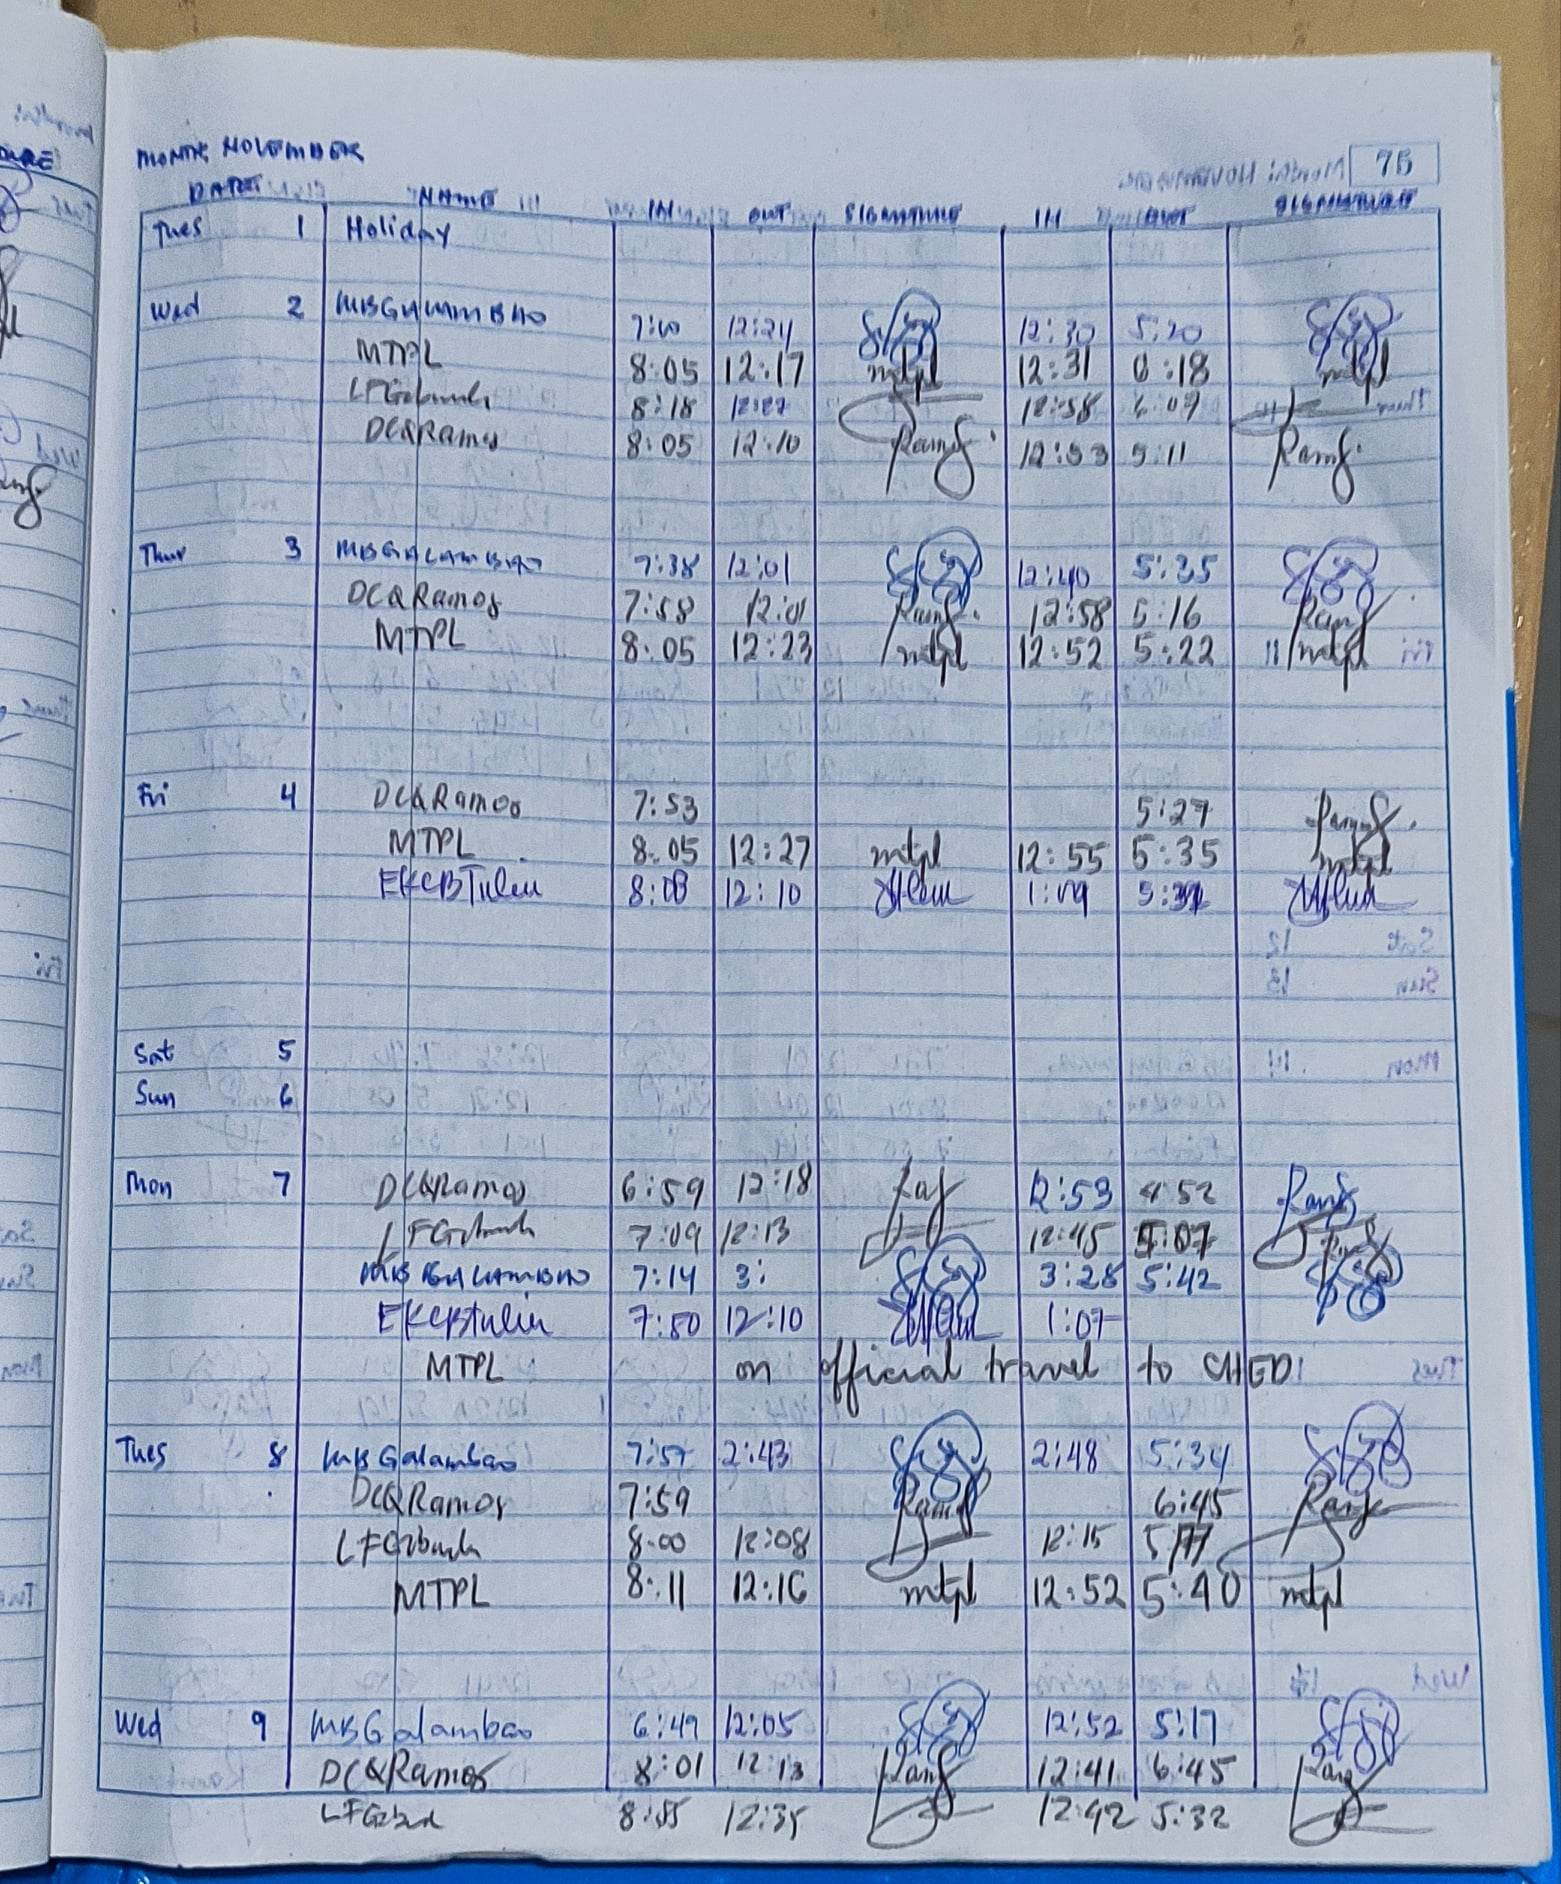 MONTH: NOVEMBER
75
DATE NAME IN OUT SIGNATURE IN OUT SIGNATURE
Tues 1 Holiday
Wed 2 MBGALAMBAO 12:24 12:30 5:20
MTPL 8:05 12:17 mtpl 12:31 6:18 mtpl
8:18 12:27 12:58 6:07
DCQRamos 8:05 12:10 Ramos 12:53 5:11 Ramos
Thur 3 MBGALAMBAO 7:38 12:01 12:40 5:35
DCQRamos 7:58 12:01 Ramos 12:58 5:16 Ramos
MTPL 8:05 12:23 mtpl 12:52 5:22 mtpl
Fri 4 DCQRamos 7:53 5:27 Ramos
MTPL 8:05 12:27 mtpl 12:55 5:35 mtpl
EKCBTulin 8:08 12:10 1:09
Sat 5
Sun 6
Mon 7 DCQRamos 6:59 12:18 12:53 4:52 Ramos
7:09 12:13 12:45 5:07
MBGALAMBAO 7:14 3: 3:28 5:42
EKCBTulin 7:50 12:10 1:07
MTPL on official travel to CHED
Tues 8 MBGalambao 7:57 2:43 2:48 5:34
DCQRamos 7:59 Ramos 6:45 Ramos
8:00 12:08 12:15
MTPL 8:11 12:16 mtpl 12:52 5:40 mtpl
Wed 9 MBGalambao 6:49 12:05 12:52 5:17
DCQRamos 8:01 12:13 12:41 6:45
12:35 12:42 5:32